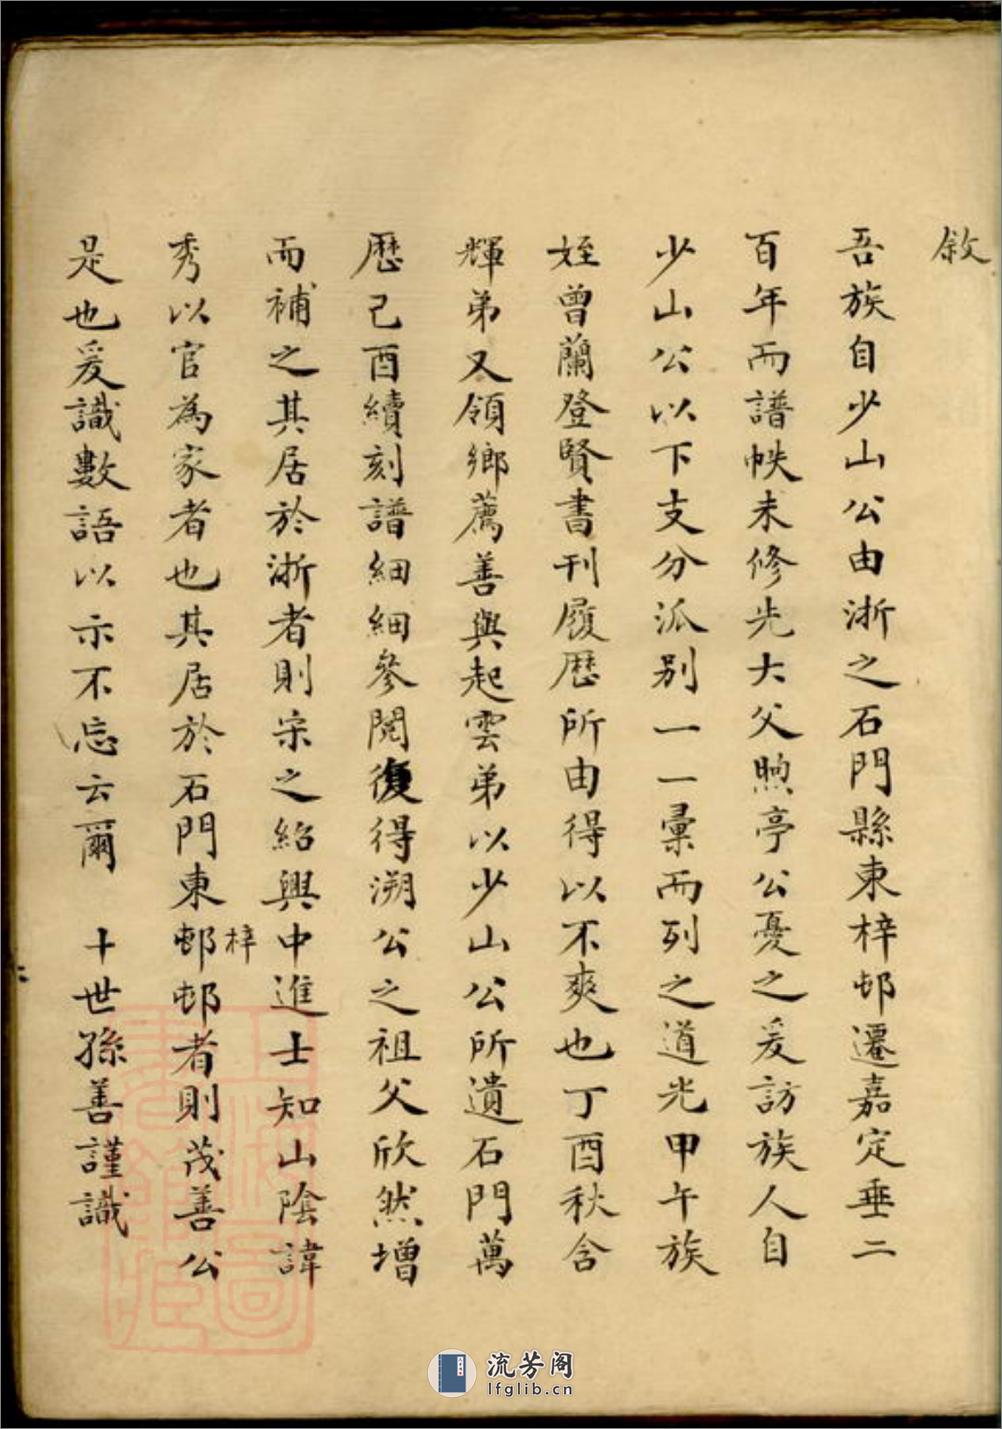 敘
吾族自少山公由浙之石門縣東梓邨遷嘉定垂二
百年而譜帙未修先大父煦亭公憂之爰訪族人自
少山公以下支分派别一一彙而列之道光甲午族
姪曾蘭登賢書刊履歷所由得以不爽也丁酉秋含
輝弟又領鄉薦善與起雲弟以少山公所遺石門萬
歷己酉續刻譜細細參閱復得溯公之祖父欣然增
而補之其居於浙者則宋之紹興中進士知山陰諱
秀以官為家者也其居於石門東梓邨邨者則茂善公
是也爰識數語以示不忘云爾 十世孫善謹識
上海圖書館藏
流芳阁
lfglib.cn